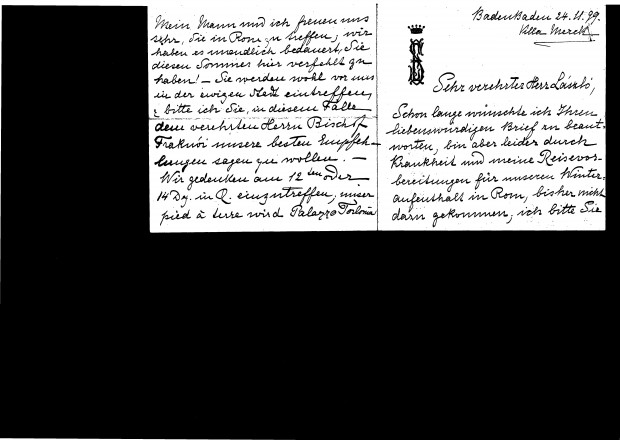 BadenBaden 24.11.99.
Villa Merck
Sehr verehrter Herr László,
Schon lange wünschte ich Ihren
liebenswürdigen Brief zu beant-
worten, bin aber leider durch
Krankheit und meine Reisevor-
bereitungen für unseren Winter-
aufenthalt in Rom, bisher nicht
dazu gekommen; ich bitte Sie
Mein Mann und ich freuen uns
sehr, Sie in Rom zu treffen; wir
haben es unendlich bedauert, Sie
diesen Sommer hier verfehlt zu
haben! – Sie werden wohl vor uns
in der ewigen Stadt eintreffen,
bitte ich Sie, in diesem Falle
dem verehrten Herrn Bischof
Fraknói unsere besten Empfeh-
lungen sagen zu wollen. –
Wir gedenken am 12ten oder
14 Dz. in R. einzutreffen, unser
pied à terre wird Palazzo Torlonia